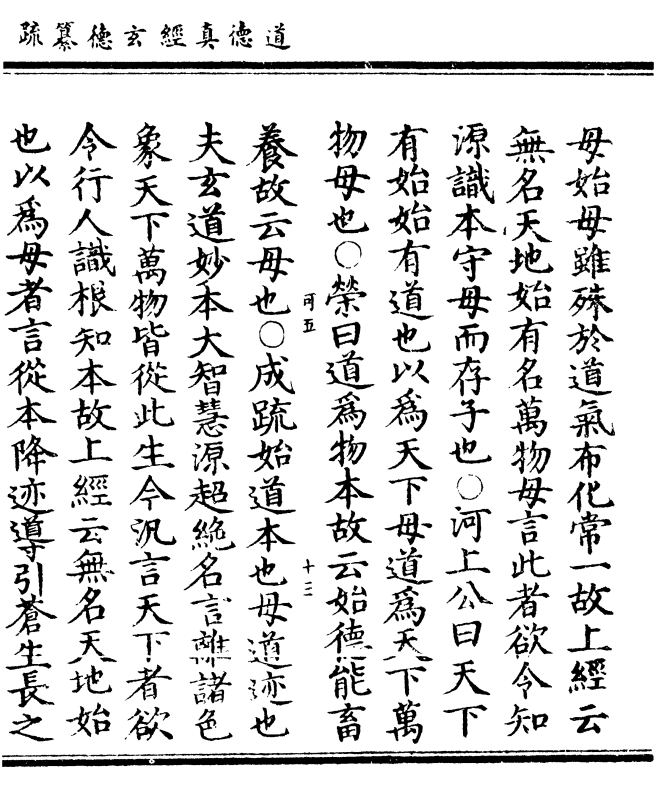 道德真經玄德纂疏
母始母雖殊於道氣布化常一故上經云
無名天地始有名萬物母言此者欲令知
源識本守母而存子也○河上公曰天下
有始始有道也以爲天下母道爲天下萬
物母也○榮曰道爲物本故云始德能畜
可五
十二
養故云母也○成疏始道本也母道迹也
夫玄道妙本大智慧源超絕名言離諸色
象天下萬物皆從此生今汎言天下者欲
令行人識根知本故上經云無名天地始
也以爲母者言從本降迹導引蒼生長之